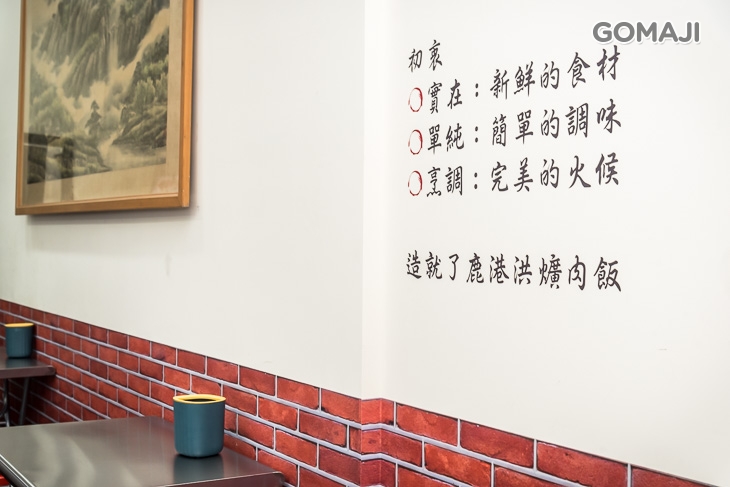 GOMAJI
初衷
實在：新鮮的食材
單純：簡單的調味
烹調：完美的火候
造就了鹿港洪爌肉飯